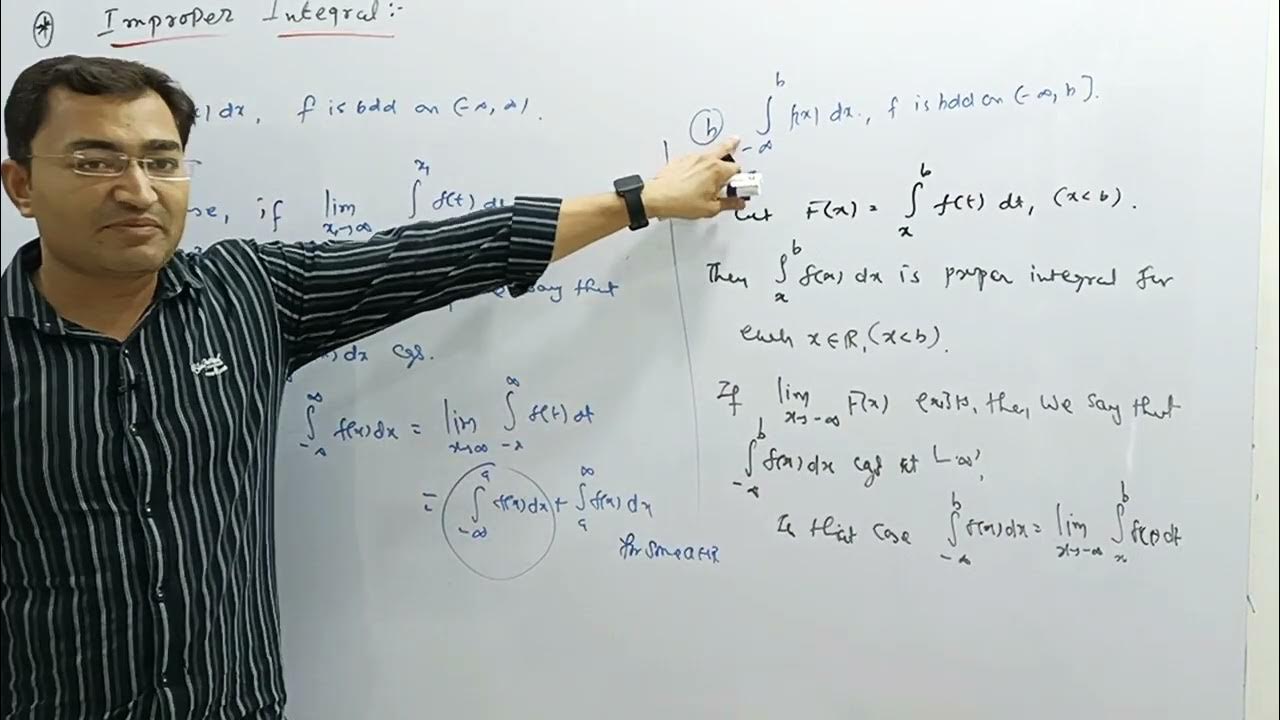 * Improper Integral :-
) dx, f is bdd on (-∞, ∞).
se, if lim x₁→∞ ∫ x₁ f(t) dt
say that
) dx cgs.
∫_{-∞}^{∞} f(x) dx = lim x→∞ ∫_{-x}^{∞} f(t) dt
= ∫_{-∞}^{a} f(x) dx + ∫_{a}^{∞} f(x) dx
for some a∈R
(b) ∫_{-∞}^{b} f(x) dx, f is bdd on (-∞, b].
Let F(x) = ∫_{x}^{b} f(t) dt, (x<b).
Then ∫_{x}^{b} f(x) dx is proper integral for
each x∈R, (x<b).
If lim x→-∞ F(x) exists, then we say that
∫_{-∞}^{b} f(x) dx cgs at '-∞',
In that case ∫_{-∞}^{b} f(x) dx = lim x→-∞ ∫_{x}^{b} f(t) dt